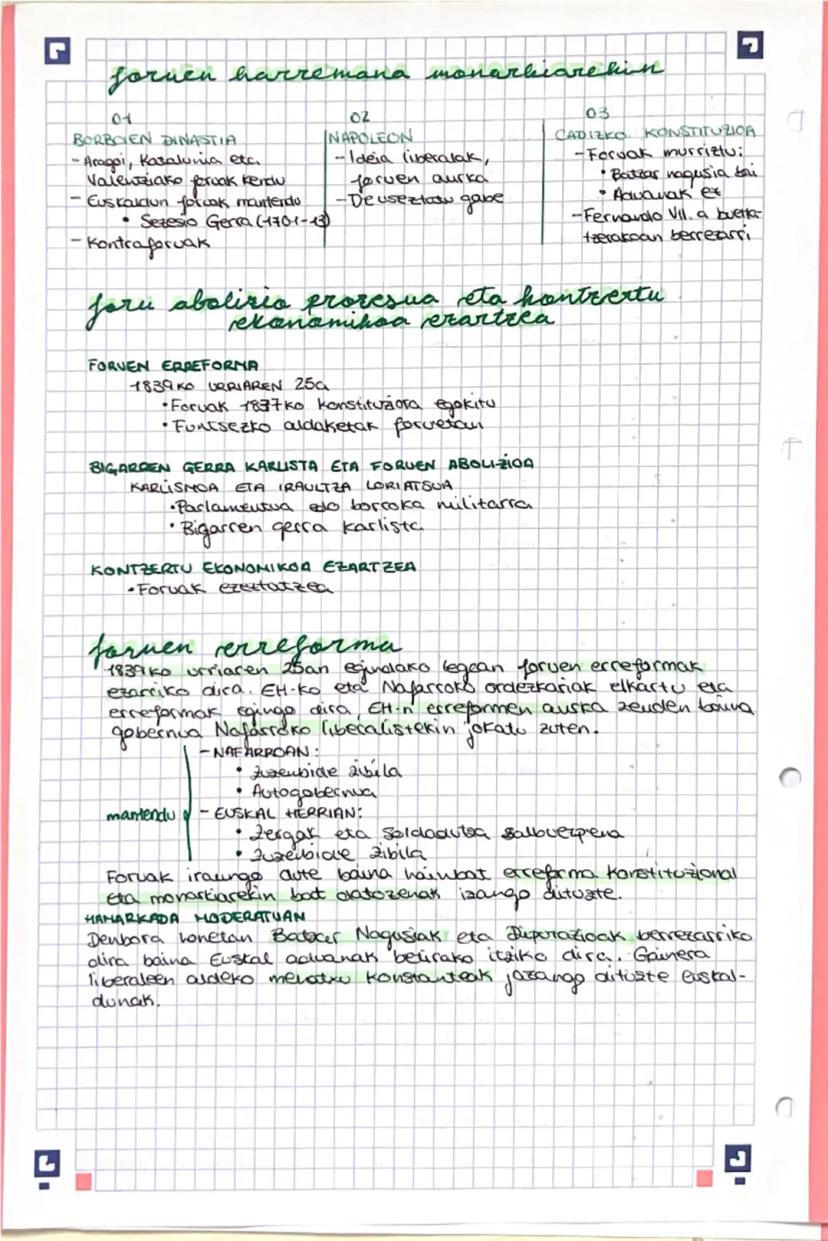 foruen harremana monarkiarekin
01
BORBOIEN DINASTIA
- Aragoi, Katalunia etc.
Valentziako foruak kendu
- Euskaldun foruak mantendu
• Sezesio Gerra (1701-13)
- Kontraforuak
02
NAPOLEON
- Ideia liberalak,
foruen aurka
- Deuseztatu gabe
03
CADIZKO KONSTITUZIOA
- Foruak murriztu:
• Batzar nagusia bai
• Aduanak ez
- Fernando VII.a buelta-
tzerakoan berrezarri
foru abolizio prozesua eta kontzertu
ekonomikoa ezartzea
FORUEN ERREFORMA
1839KO URRIAREN 25a
• Foruak 1837ko konstituziora egokitu
• Funtsezko aldaketak foruetan
BIGARREN GERRA KARLISTA ETA FORUEN ABOLIZIOA
KARLISMOA ETA IRAULTZA LORIATSUA
• Parlamentua edo borroka militarra
• Bigarren gerra karlista
KONTZERTU EKONOMIKOA EZARTZEA
• Foruak ezeztatzea
foruen erreforma
1839ko urriaren 25an egindako legean foruen erreformak
ezarriko dira. EH-ko eta Nafarroko ordezkariak elkartu eta
erreformak egingo dira, EH-n erreformen aurka zeuden baina
gobernua Nafarroko liberalistekin jokatu zuten.
- NAFARROAN:
• Zuzenbide zibila
• Autogobernua
mantendu - EUSKAL HERRIAN:
• Zergak eta soldadutza salbuespena
• Zuzenbide zibila
Foruak iraungo dute baina hainbat erreforma konstituzional
eta monarkiarekin bat datozenak izango dituzte.
HAMARKADA MODERATUAN
Denbora honetan Batzar Nagusiak eta Diputazioak berrezarriko
dira baina Euskal aduanak betirako itxiko dira. Gainera
liberaleen aldeko menatu konstanteak jasango dituzte euskal-
dunak.